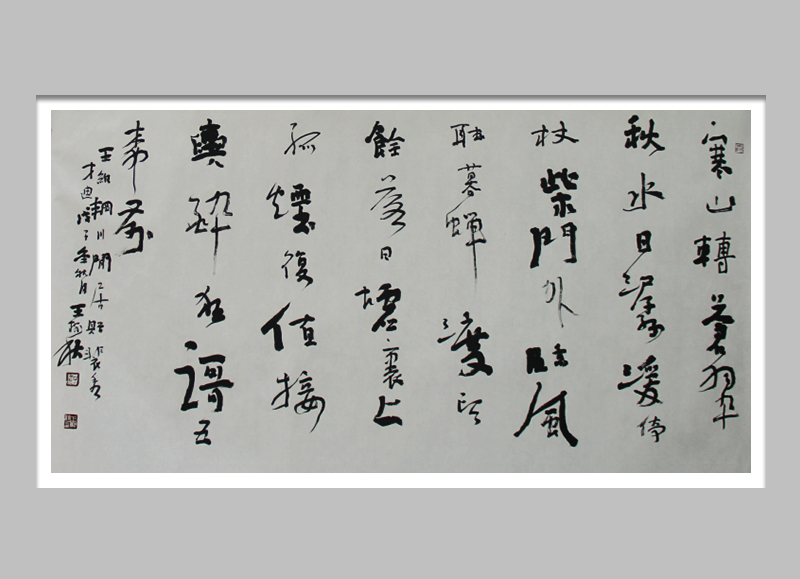 寒山轉蒼翠
秋水日潺湲倚
杖柴門外臨風
聽暮蟬渡頭
餘落日墟裏上
孤煙復值接
輿醉狂謌五
柳前
王維輞川閒居贈裴秀
才迪戊子季秋月王